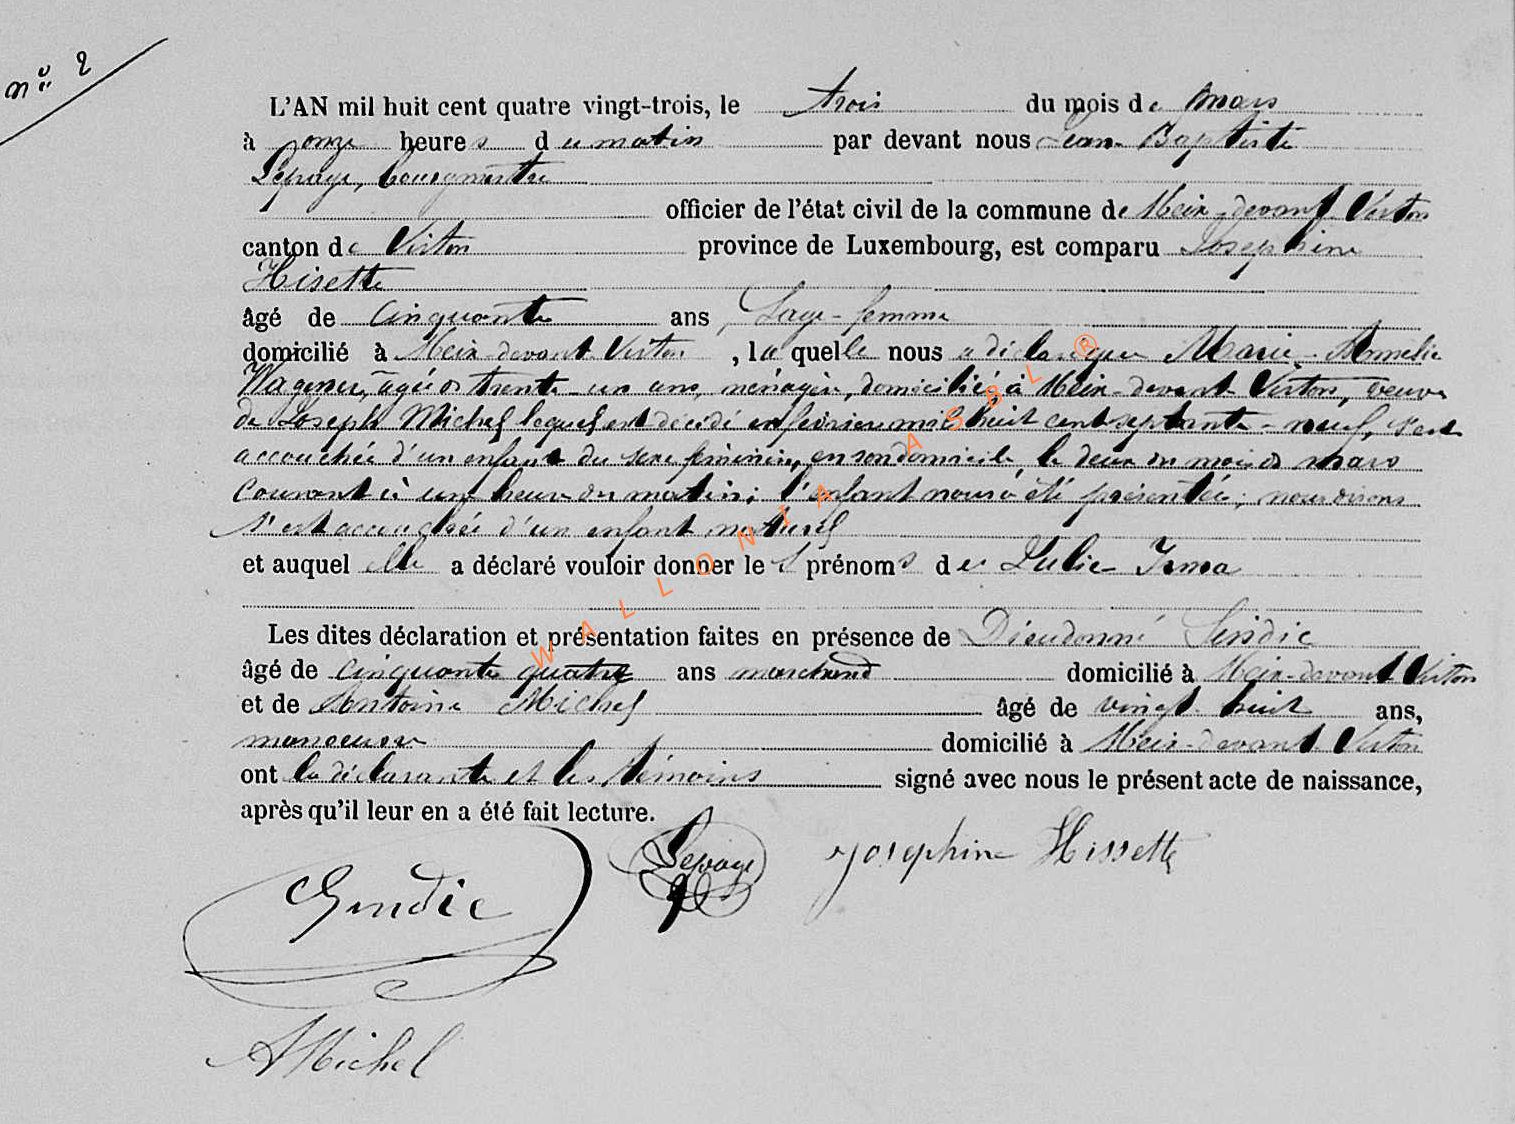 nº 2
L'AN mil huit cent quatre vingt-trois, le trois du mois de mars
à onze heures du matin par devant nous Jean-Baptiste
Lepage, bourgmestre
officier de l'état civil de la commune de Meix-devant Virton
canton de Virton province de Luxembourg, est comparu Joséphine
Hisette
âgé de cinquante ans, Sage-femme
domicilié à Meix-devant Virton, la quelle nous a déclaré que Marie-Amélie
Wagener, agée de trente-un ans, ménagère, domiciliée à Meix-devant Virton, veuve
de Joseph Michel lequel est décédé en février mil huit cent septante-neuf, s'est
accouchée d'un enfant du sexe féminin, en son domicile, le deux du mois de mars
courant à une heure du matin; l'enfant nous a été présentée; nous disons
s'est accouchée d'un enfant naturel
et auquel elle a déclaré vouloir donner les prénoms de Julie Irma
Les dites déclaration et présentation faites en présence de Dieudonné Sindic
âgé de cinquante quatre ans marchand domicilié à Meix-devant Virton
et de Antoine Michel âgé de vingt huit ans,
manoeuvre domicilié à Meix-devant Virton
ont la déclarante et les témoins signé avec nous le présent acte de naissance,
après qu'il leur en a été fait lecture.
Sindic Lepage Joséphine Hissette
A Michel
WALLONIA ASBL ®